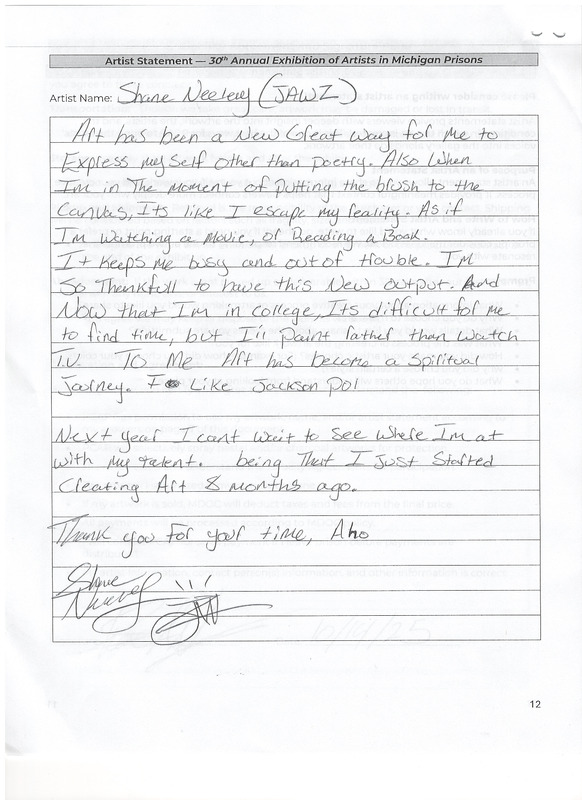 Artist Statement — 30th Annual Exhibition of Artists in Michigan Prisons
Artist Name: Shane Neeley (JAWZ)
Art has been a New Great way for me to
Express myself other than poetry. Also When
I'm in The moment of putting the brush to the
Canvas, Its like I escape my reality. As if
I'm watching a movie, or Reading a Book.
It keeps me busy and out of trouble. I'm
So Thankfull to have this New output. And
Now that I'm in college, Its difficult for me
to find time, but I'll paint rather than watch
T.V. TO Me Art has become a Spiritual
Journey. I Like Jackson Pol
Next year I cant wait to see where I'm at
with my talent. being That I Just Started
Creating Art 8 months ago.
Thank you For your time, Aho
Shane
Neeley
12